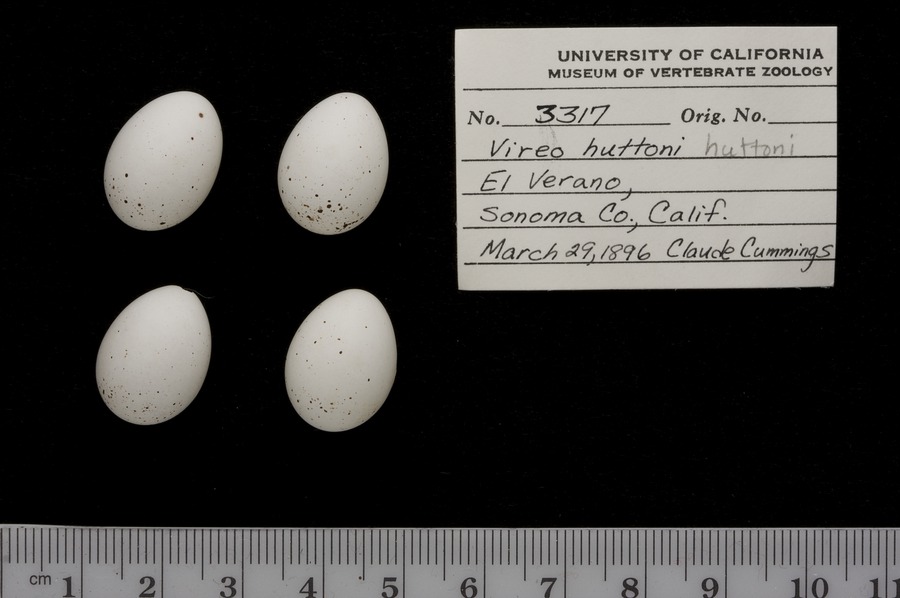 UNIVERSITY OF CALIFORNIA
MUSEUM OF VERTEBRATE ZOOLOGY
No. 3317 Orig. No.
Vireo huttoni huttoni
El Verano,
Sonoma Co., Calif.
March 29, 1896 Claude Cummings
cm 1 2 3 4 5 6 7 8 9 10 11